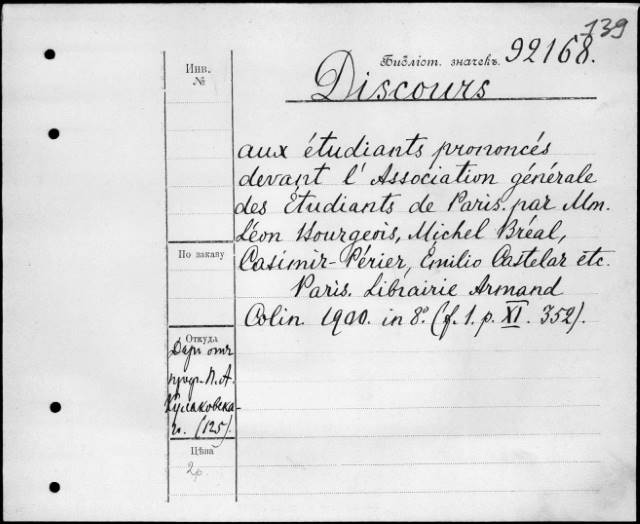 139
Библіот. значекъ. 92168.
Discours
Инв.
№
aux étudiants prononcés
devant l'Association générale
des Étudiants de Paris par Mm.
Léon Bourgeois, Michel Bréal,
Casimir-Périer, Emilio Castelar etc.
Paris. Librairie Armand
Colin. 1900. in 8° (f. 1. p. XI. 352).
По заказу
Откуда
Даръ отъ
проф. П. А.
Кулаковска-
го. (125).
Цѣна
2р.